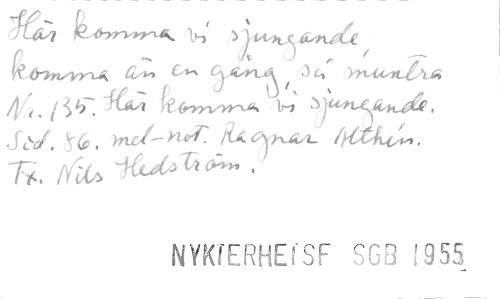 Här komma vi sjungande,
komma än en gång, så muntra
Nr. 135. Här komma vi sjungande.
Sid. 86. mel-not. Ragnar Althén.
Tx. Nils Hedström.
NYKTERHETSF SGB 1955